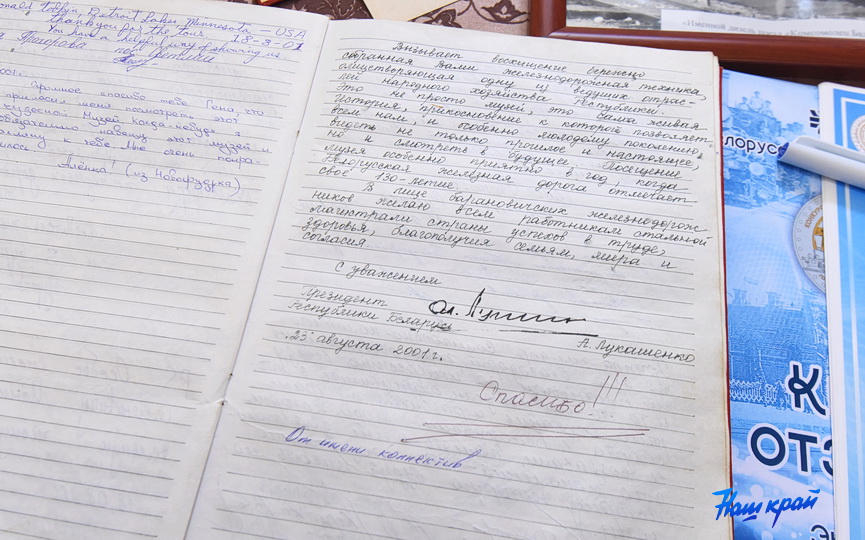 Donald Tobkin, Detroit Lakes, Minnesota – USA
Thank you for the tour.
You have a
18-3-01
Огромное спасибо тебе Гена, что
посмотреть этот
чудесной музей. Когда-нибудь я
обязательно навещу этот музей и
к тебе. Мне очень понра-
вилось.
Алёнка! (из
Вызывает восхищение бережно
собранная Вами железнодорожная техника,
олицетворяющая одну из ведущих отрас-
лей народного хозяйства республики.
Это не просто музей, это сама живая
история, прикосновение к которой позволяет
всем нам, и особенно молодому поколению,
видеть не только прошлое и настоящее,
но и смотреть в будущее. Посещение
музея особенно приятно в год, когда
Белорусская железная дорога отмечает
своё 130-летие.
В лице барановичских железнодорож-
ников желаю всем работникам стальной
магистрали страны успехов в труде,
здоровья, благополучия семьям, мира и
согласия.
С уважением
Президент
Республики Беларусь
А. Лукашенко
23 августа 2001 г.
Спасибо!!!
От имени коллектив
елорус
К
ОТЗ
Наш край